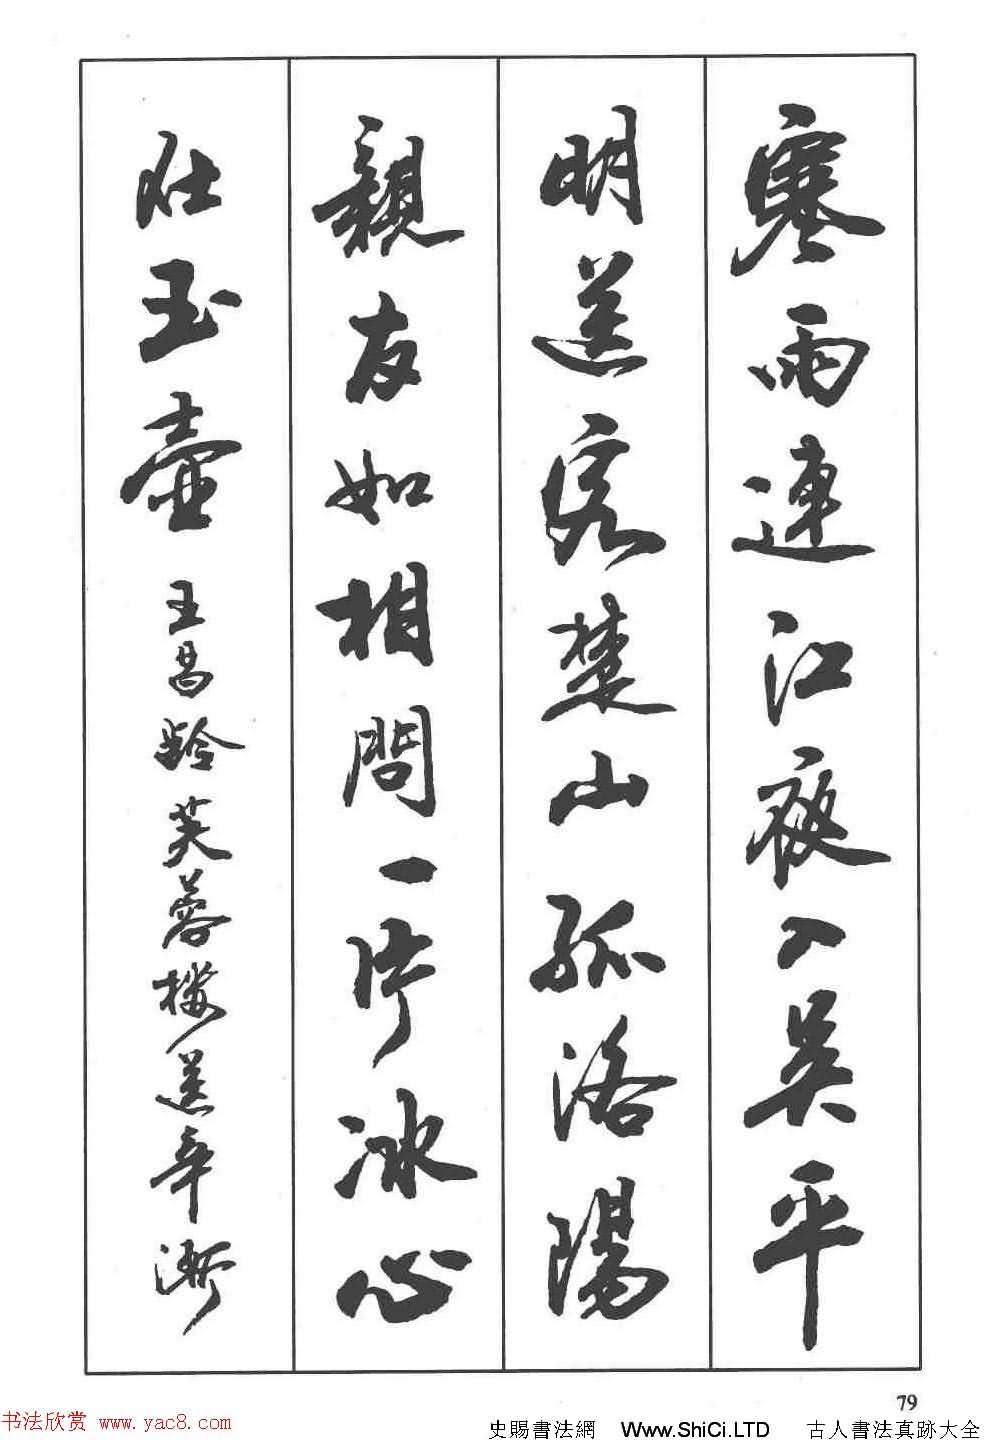 寒雨連江夜入吴平
明送客楚山孤洛陽
親友如相問一片冰心
在玉壺
王昌齡芙蓉樓送辛漸
79
书法欣赏 www.yac8.com
史賜書法網 Www.ShiCi.LTD 古人書法真跡大全